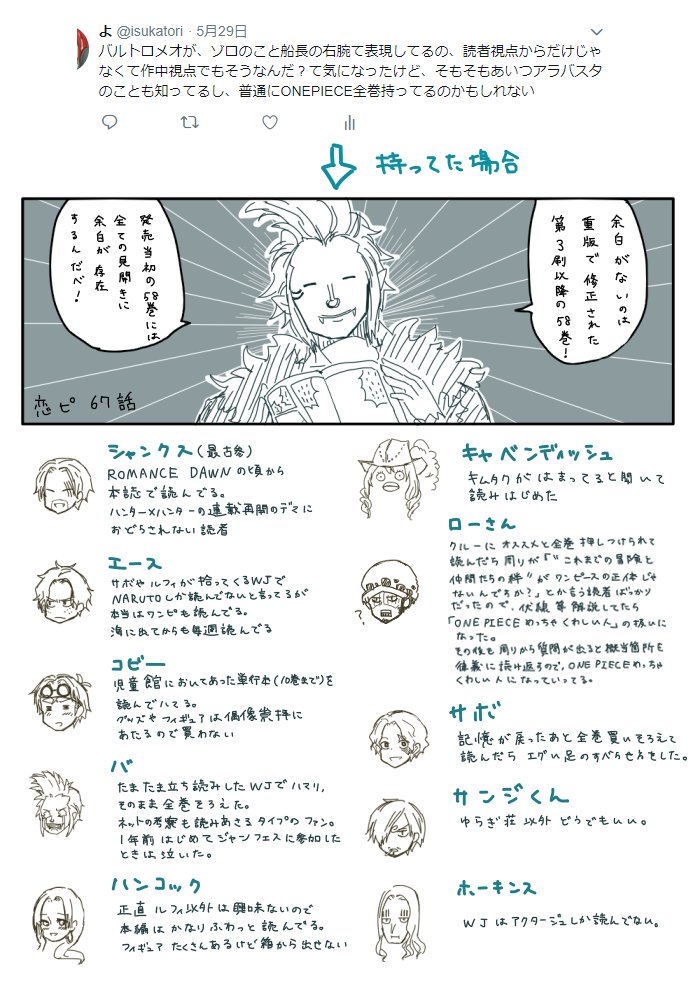 よ @isukatori · 5月29日
バルトロメオが、ゾロのこと船長の右腕て表現してるの、読者視点からだけじゃ
なくて作中視点でもそうなんだ？て気になったけど、そもそもあいつアラバスタ
のことも知ってるし、普通にONEPIECE全巻持ってるのかもしれない
持ってた場合
余白がないのは
重版で修正された
第3刷以降の58巻！
発売当初の58巻には
全ての見開きに
余白が存在
するんだべ！
恋ピ 67話
シャンクス(最古参)
ROMANCE DAWNの頃から
本誌で読んでる。
ハンター×ハンターの連載再開のデマに
おどらされない読者
エース
サボやルフィが拾ってくるWJで
NARUTOしか読んでないと言ってるが
本当はワンピも読んでる。
海に出てからも毎週読んでる
コビー
児童館においてあった単行本(10巻まで)を
読んでハマる。
グッズやフィギュアは偶像崇拝に
あたるので買わない
バ
たまたま立ち読みしたWJでハマリ、
そのまま全巻そろえた。
ネットの考察も読みあさるタイプのファン。
1年前はじめてジャンフェスに参加した
ときは泣いた。
ハンコック
正直ルフィ以外は興味ないので
本編はかなりふわっと読んでる。
フィギュアたくさんあるけど箱から出せない
キャベンディッシュ
キムタクがはまってると聞いて
読みはじめた
ローさん
クルーにオススメと全巻押しつけられて
読んだら周りが「"これまでの冒険と
仲間たちの絆"がワンピースの正体じゃ
ないんですか？」とか言う読者ばっかり
だったので、伏線等解説してたら
「ONE PIECEめっちゃくわしい人」の扱いに
なった。
その後も周りから質問が出ると該当箇所を
律義に読み返すので、ONE PIECEめっちゃ
くわしい人になっていってる。
?
サボ
記憶が戻ったあと全巻買いそろえて
読んだらエグい足のすべらせ方をした。
サンジくん
ゆらぎ荘以外どうでもいい。
ホーキンス
WJはアクタージュしか読んでない。